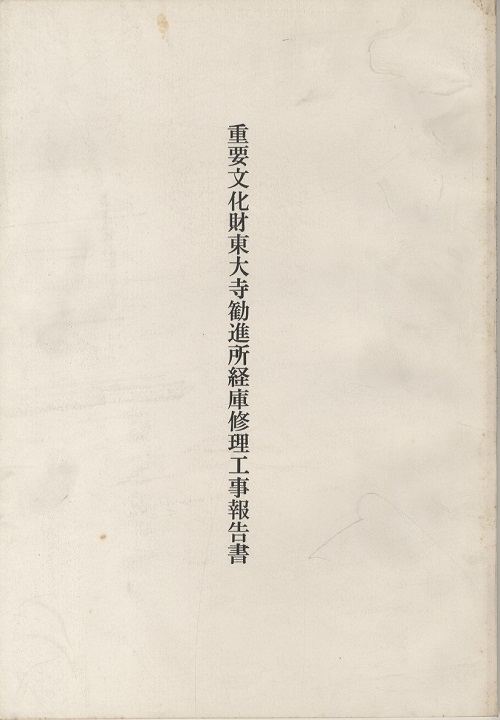 重要文化財東大寺勧進所経庫修理工事報告書